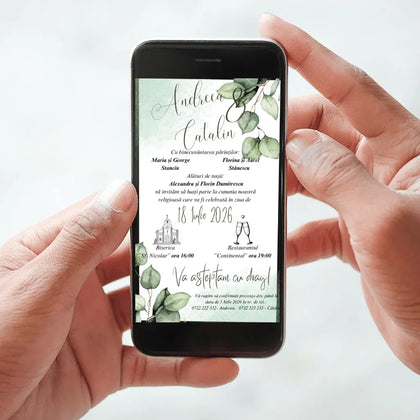 Andreea &
Catalin
Cu binecuvântarea părinților:
Maria și George
Stancin
Florina și Aurel
Stănescu
Alături de nașii:
Alexandra și Florin Dumitrescu
vă invităm să luați parte la cununia noastră
religioasă care va fi celebrată în ziua de
18 Iulie 2026
Biserica
"Sf. Nicolae" ora 16:00
Restaurantul
"Continental" ora 19:00
Va asteptam cu drag!
Vă rugăm să confirmați prezența dvs. până
data de 1 Iulie 2026 la nr. de tel.:
0722 222 332 - Andreea. 0732 323 233 -